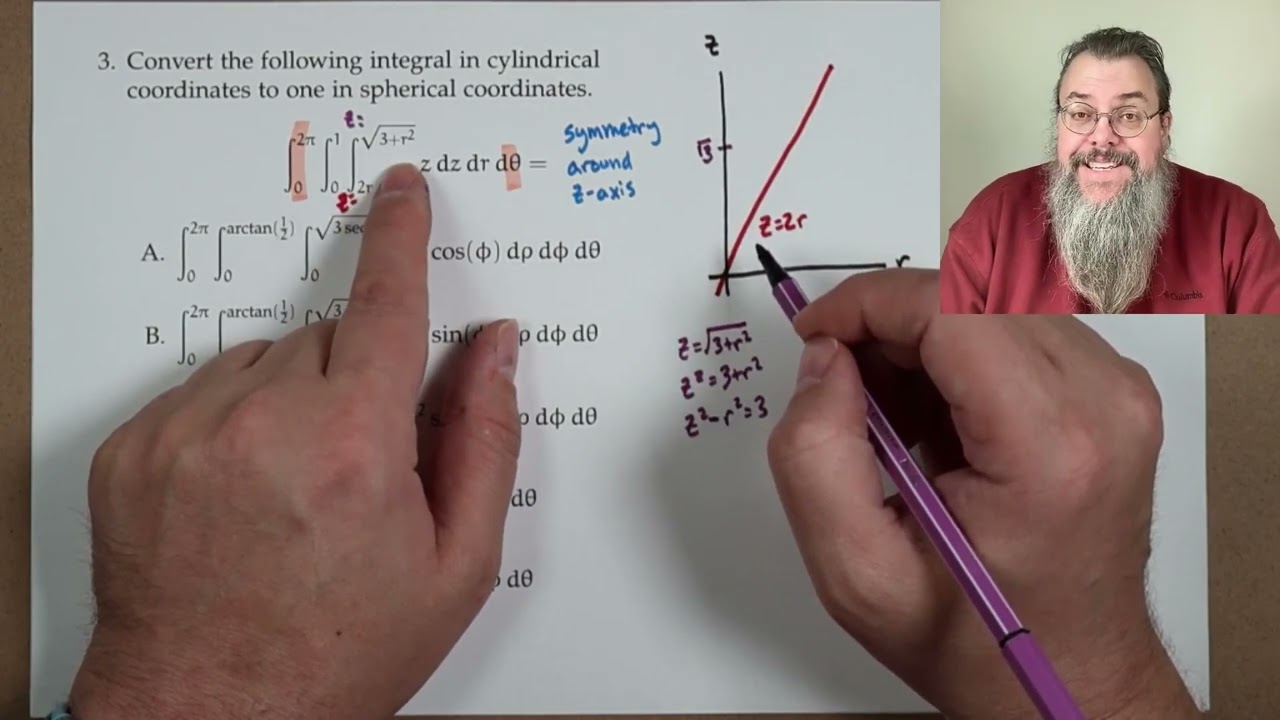 3. Convert the following integral in cylindrical
coordinates to one in spherical coordinates.
z:
∫₀^{2π} ∫₀^{1} ∫_{2r}^{√(3+r²)} z dz dr dθ =
z=
symmetry
around
z-axis
A. ∫₀^{2π} ∫₀^{arctan(1/2)} ∫₀^{√3 sec cos(ϕ) dρ dϕ dθ
B. ∫₀^{2π} ∫^{arctan(1/2)} ∫^{√3 sin( ρ dϕ dθ
2 ρ dϕ dθ
dθ
dθ
z
√3
z=2r
r
z=√(3+r²)
z²=3+r²
z²-r²=3
Columbia